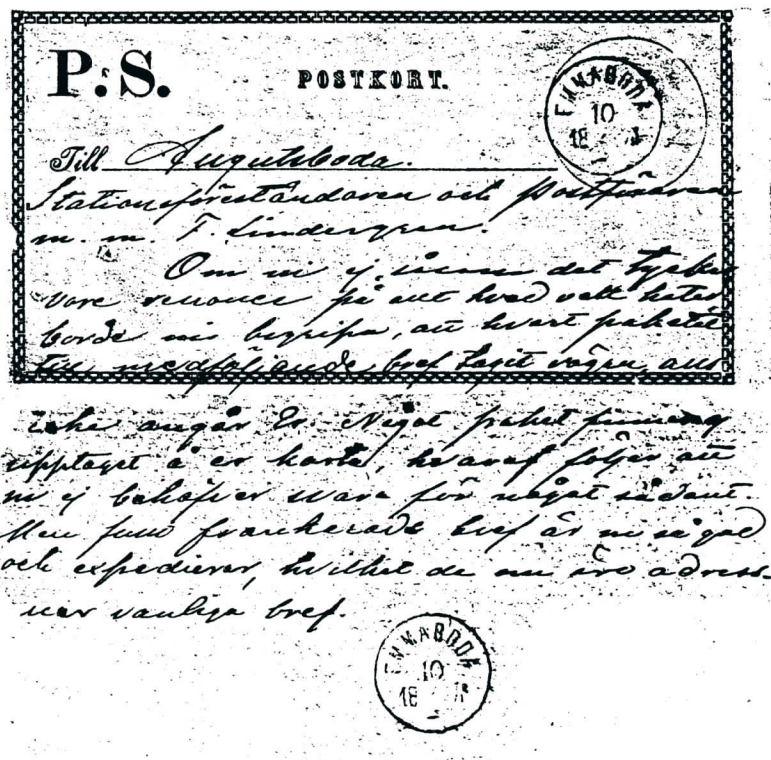 P.S.
POSTKORT.
EMMABODA
10
18
Till Augutsboda.
Stationsföreståndaren och Postföraren
m. m. F. Lindergren.
Om ni ej, såsom det tycks
vore renonce på allt hvad vett heter
borde ni begripa, att hvart paketet
till medföljande bref tagit vägen, alls
icke angår Er. Något paket finnes ej
upptaget å er karta, hvaraf följer att
ni ej behöfver svara för något sådant.
Men fullt frankerade bref är ni så god
och expedierar, hvilket de nu äro adress-
vanliga bref.
EMMABODA
10
18